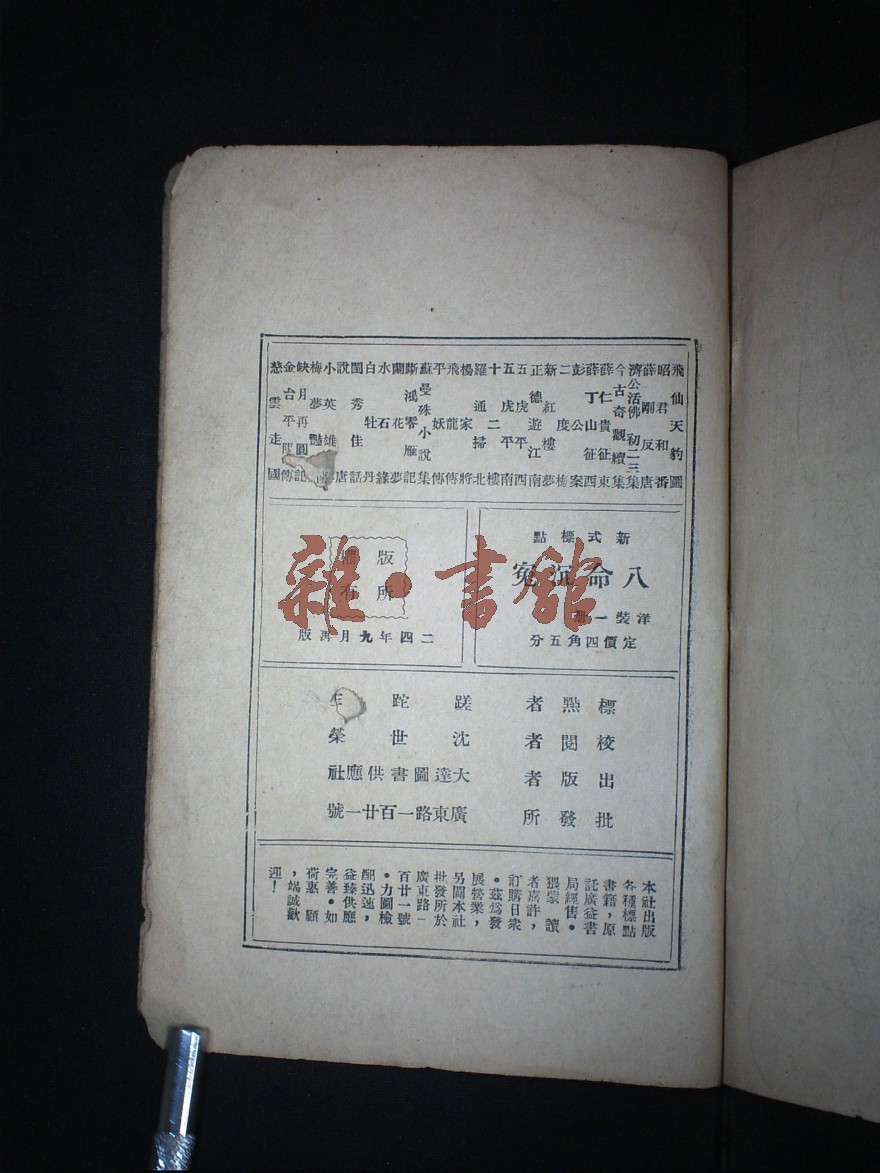 飛仙天豹圖
昭君和番
薛剛反唐
濟公活佛初二三集
今古奇觀續集
薛仁貴征東
薛丁山征西
彭公案
二度梅
新紅樓夢
正德遊江南
五虎平西
五虎平南
十二樓
羅通掃北
楊家將
飛龍傳
平妖傳
蘇曼殊小說集
斷鴻零雁記
蘭花夢
水石緣
白牡丹
閨秀佳話
說唐
小英雄
梅夢豔
缺月再圓記
金台平傳
慈雲走國
新式標點
八命沉冤
洋裝一冊
定價四角五分
版權
所有
二四年九月再版
標點者 蹉跎生
校閱者 沈世榮
出版者 大達圖書供應社
批發所 廣東路一百廿一號
本社出版
各種標點
書籍，原
託廣益書
局經售。
猥蒙讀
者嘉許，
訂購日衆
。茲爲發
展營業，
另闢本社
批發所於
廣東路一
百廿一號
。力圖檢
配迅速，
益臻供應
完善。如
荷惠顧
，竭誠歡
迎！
雜·書館